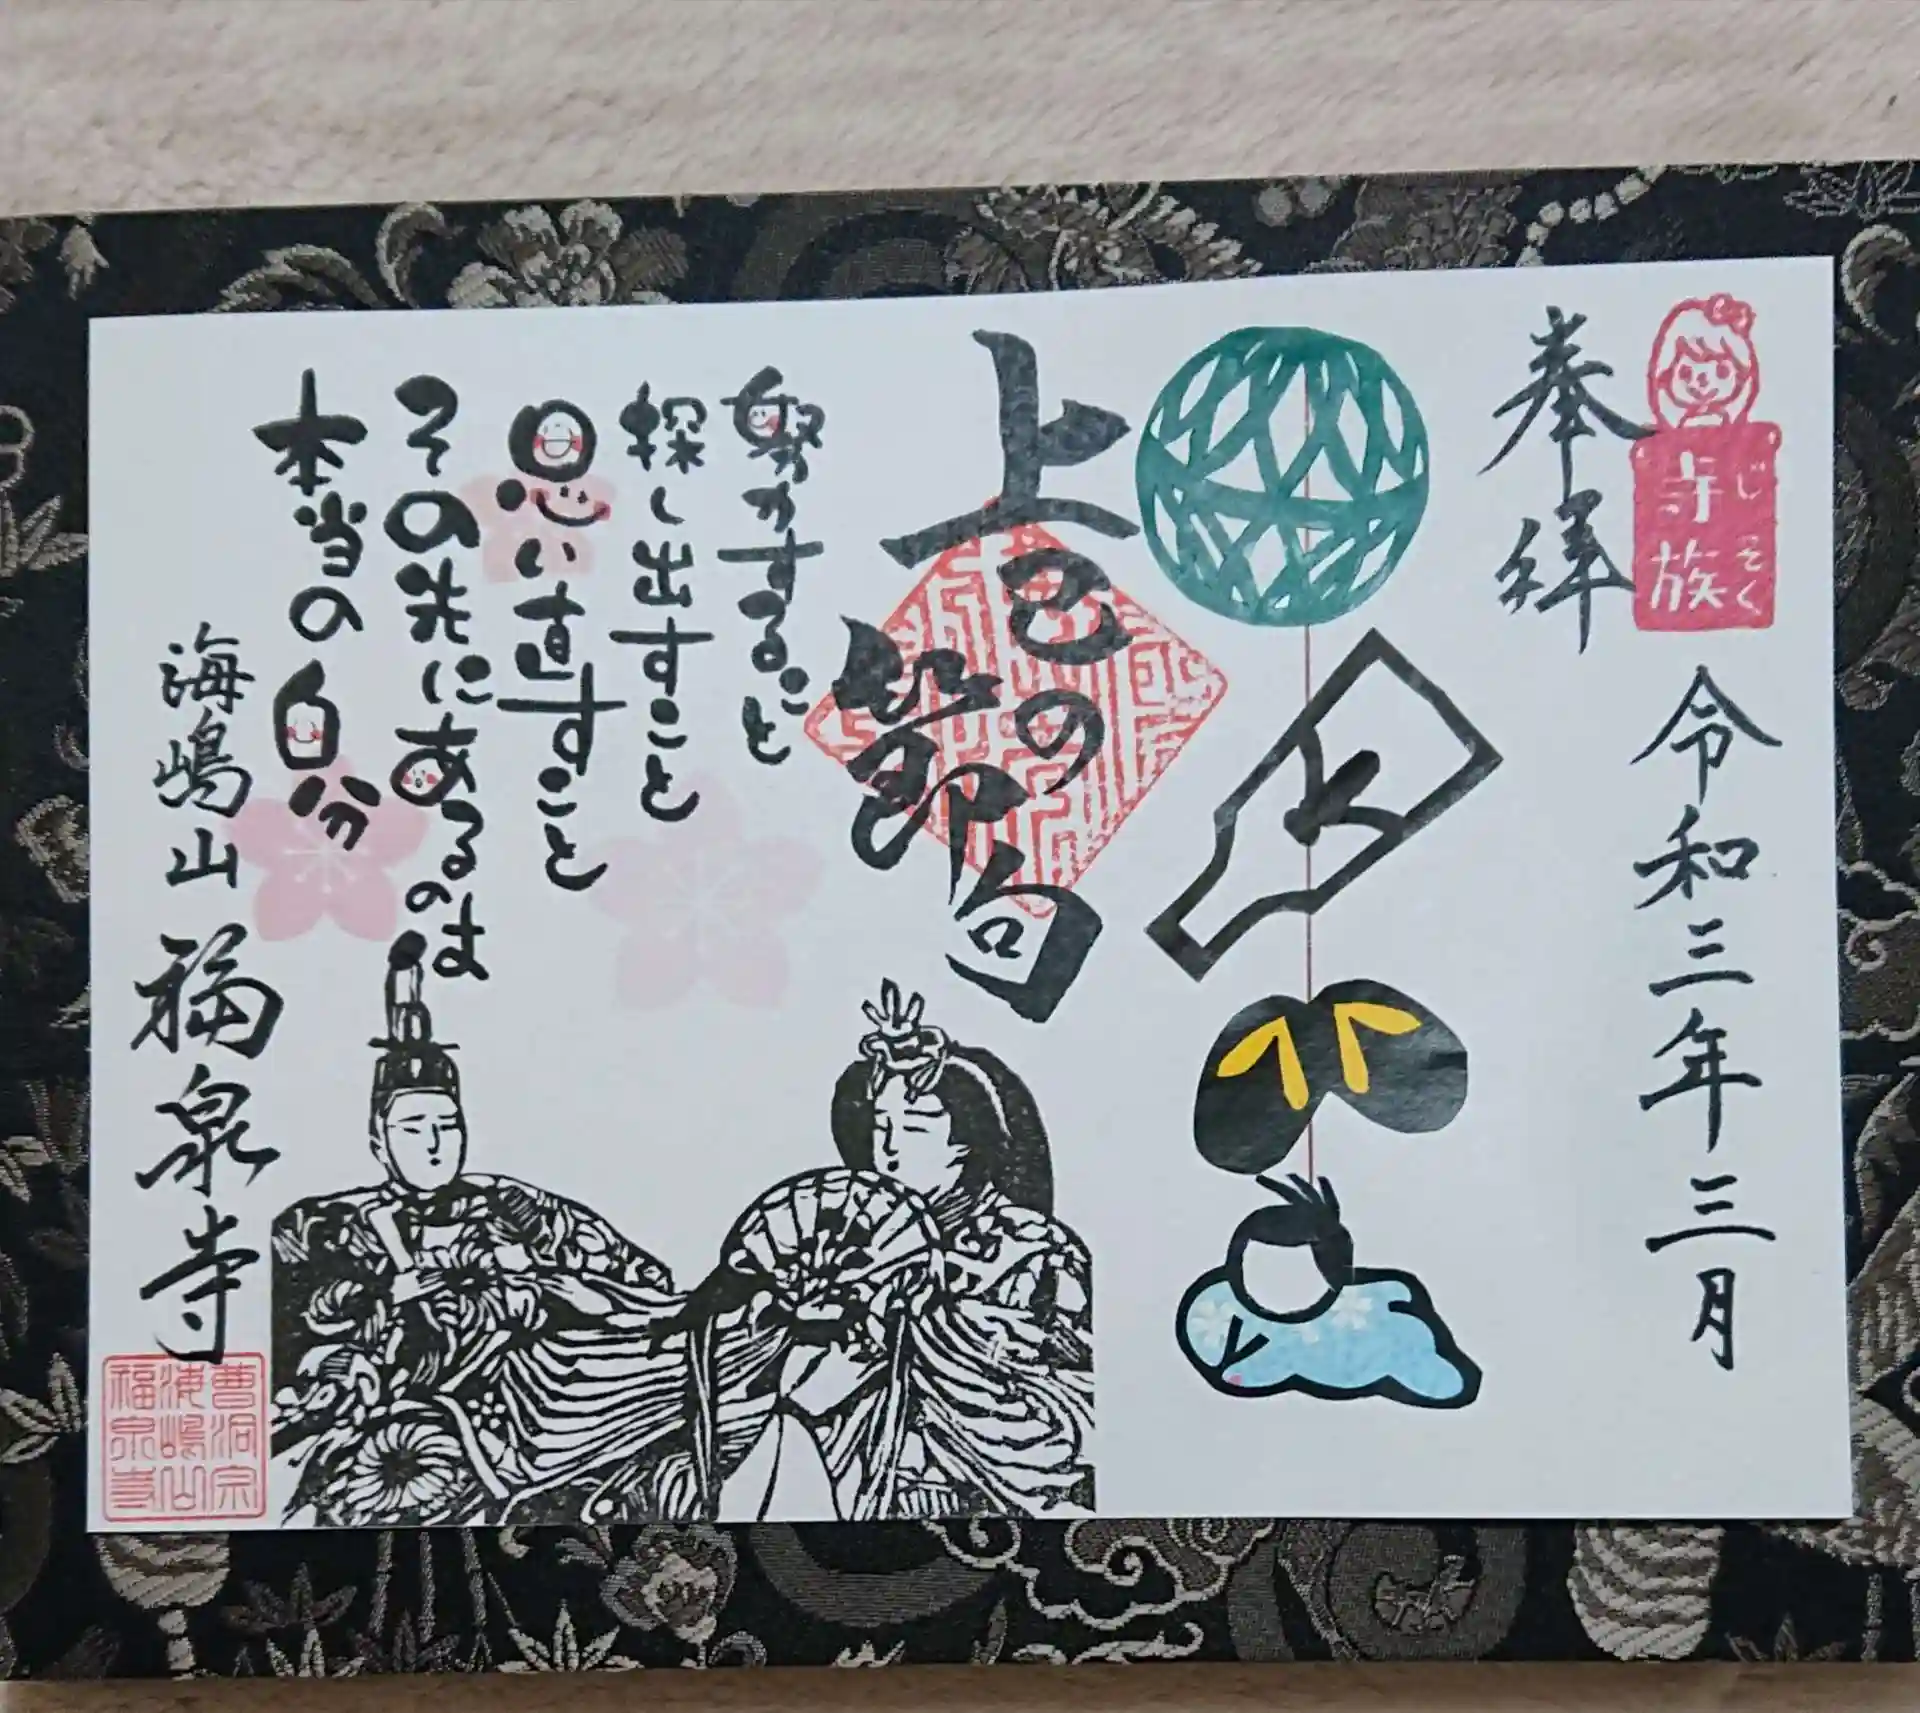 じぞく
寺族
奉拝
令和三年三月
上巳の
節句
探し出すこと
思い直すこと
その先にあるのは
本当の自分
海嶋山 福泉寺
曹洞宗
海嶋山
福泉寺